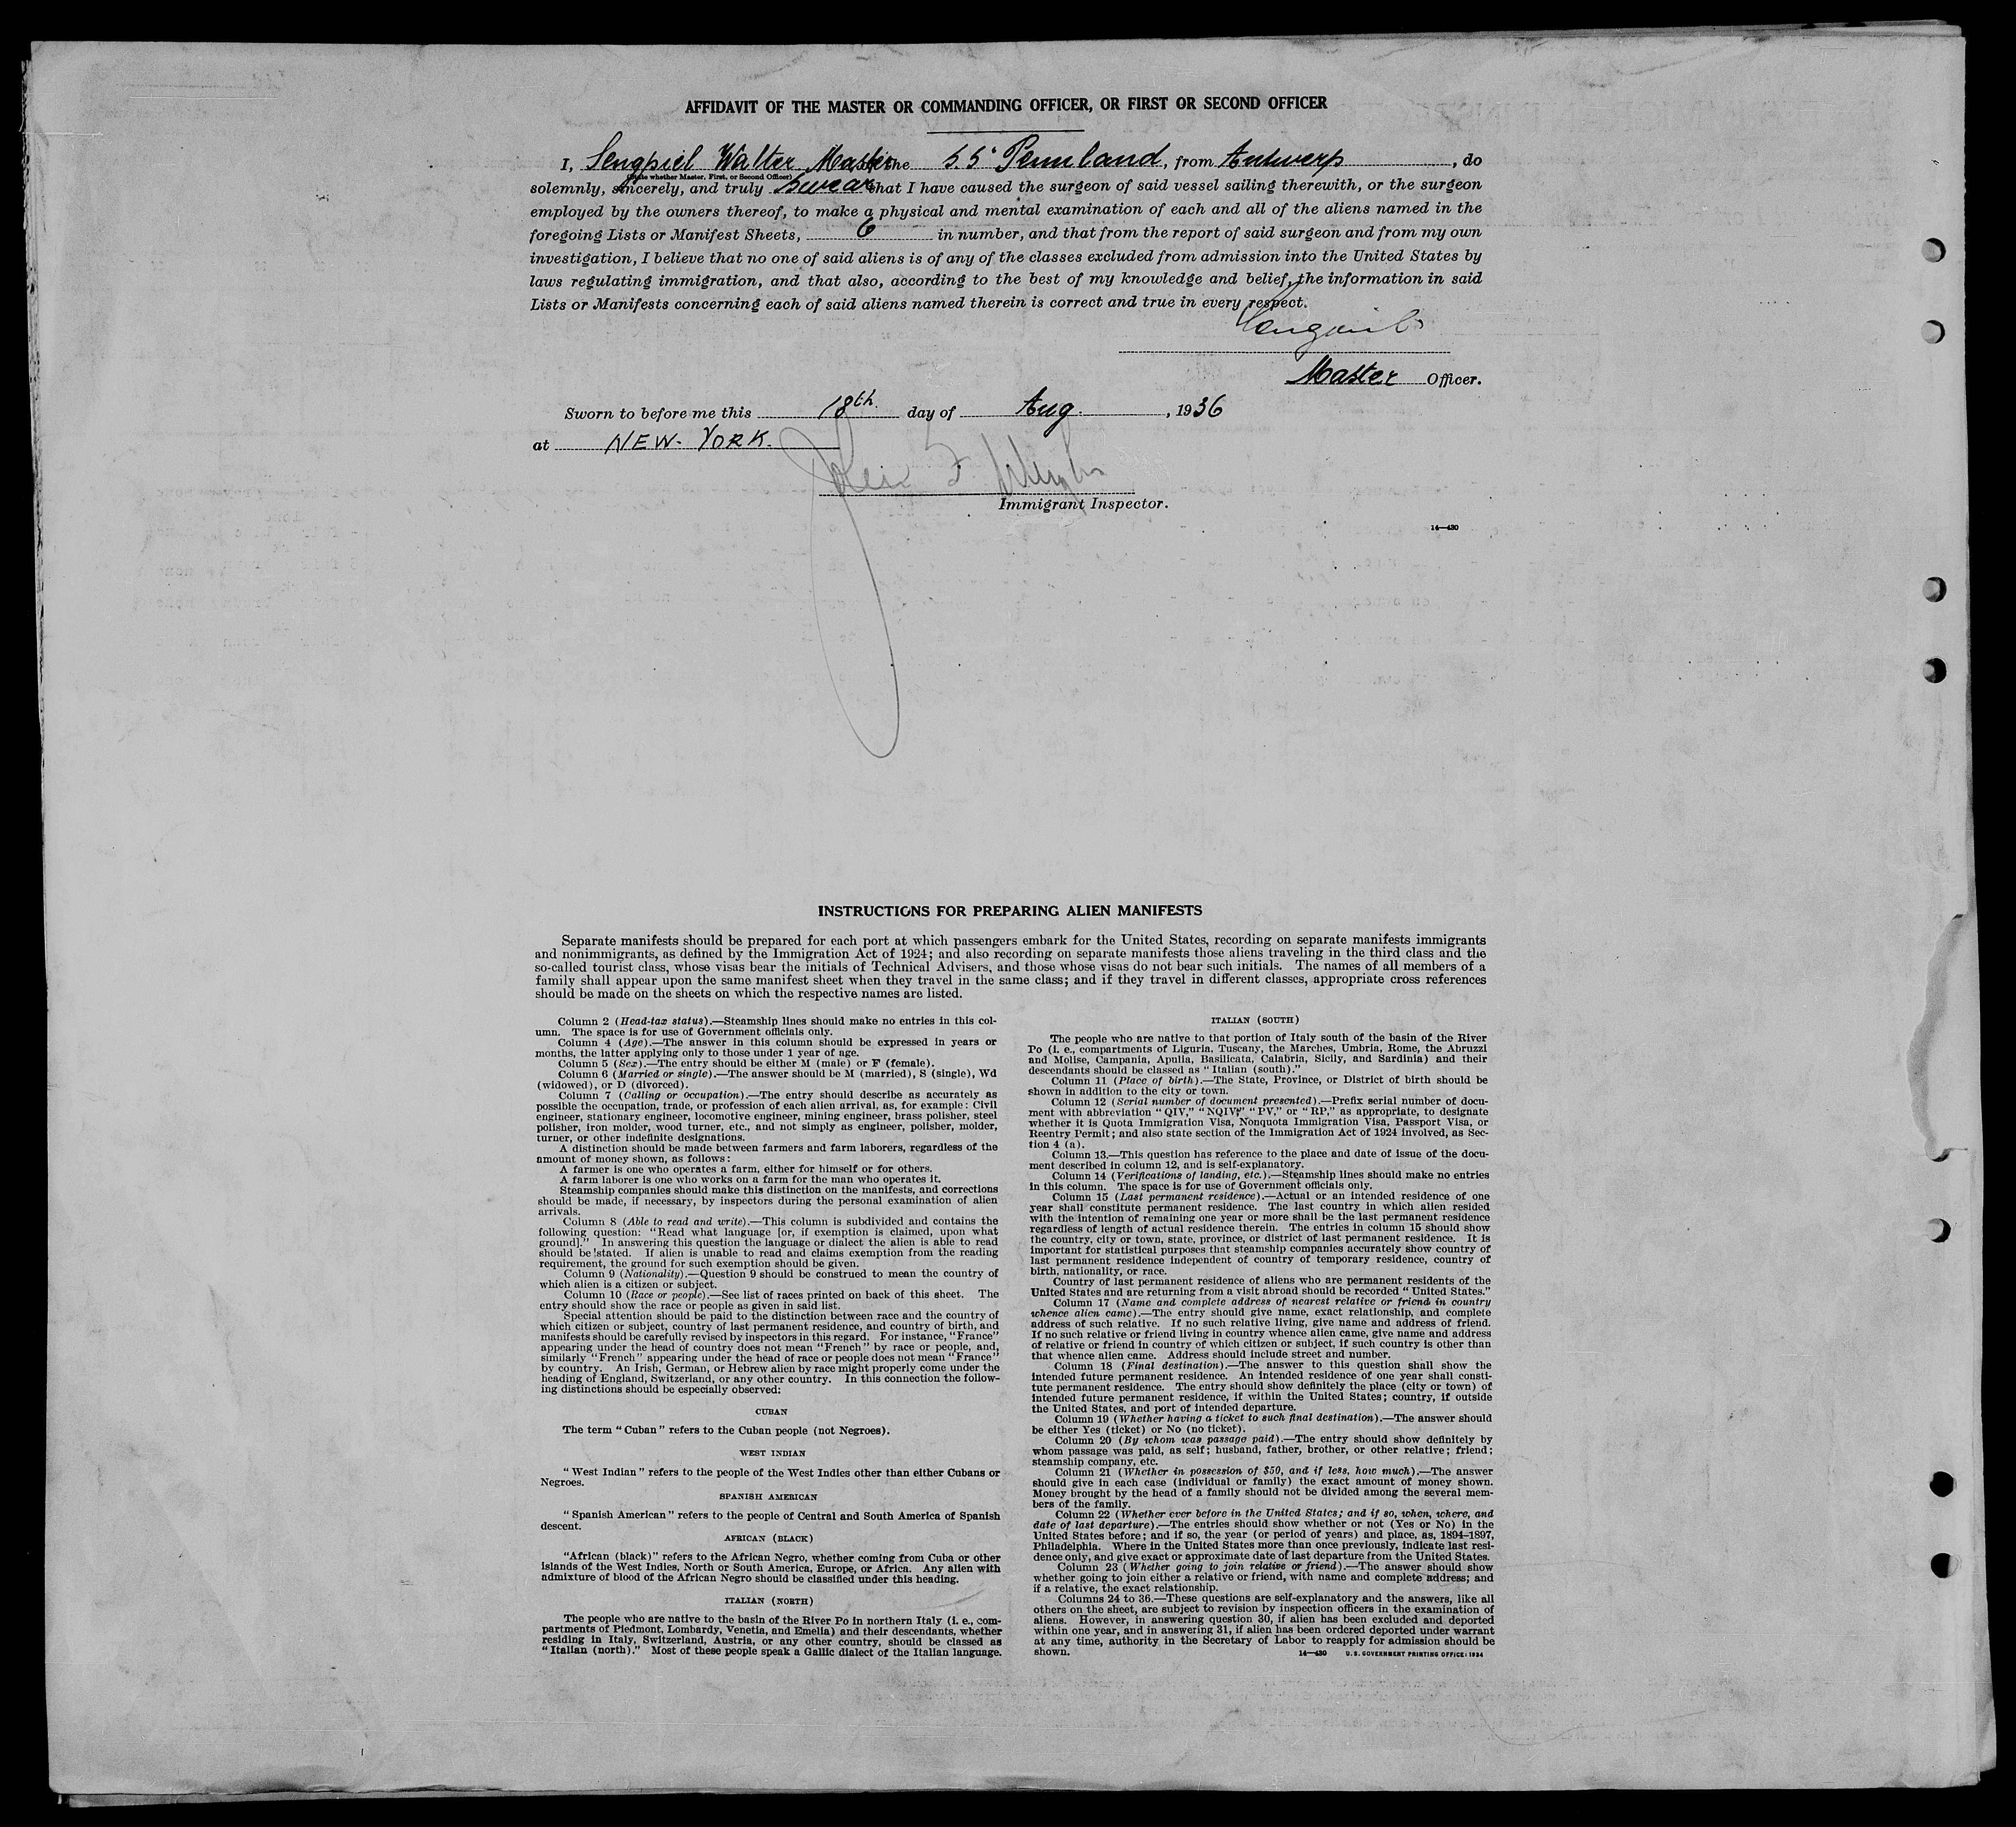 AFFIDAVIT OF THE MASTER OR COMMANDING OFFICER, OR FIRST OR SECOND OFFICER
I, Sengpiel Walter Master of the S.S. Pennland, from Antwerp, do
(State whether Master, First, or Second Officer)
solemnly, sincerely, and truly swear that I have caused the surgeon of said vessel sailing therewith, or the surgeon
employed by the owners thereof, to make a physical and mental examination of each and all of the aliens named in the
foregoing Lists or Manifest Sheets, 6 in number, and that from the report of said surgeon and from my own
investigation, I believe that no one of said aliens is of any of the classes excluded from admission into the United States by
laws regulating immigration, and that also, according to the best of my knowledge and belief, the information in said
Lists or Manifests concerning each of said aliens named therein is correct and true in every respect.
Sengpiel
Master Officer.
Sworn to before me this 18th. day of Aug., 1936
at NEW-YORK.
John F.
Immigrant Inspector.
14—430
INSTRUCTIONS FOR PREPARING ALIEN MANIFESTS
Separate manifests should be prepared for each port at which passengers embark for the United States, recording on separate manifests immigrants
and nonimmigrants, as defined by the Immigration Act of 1924; and also recording on separate manifests those aliens traveling in the third class and the
so-called tourist class, whose visas bear the initials of Technical Advisers, and those whose visas do not bear such initials. The names of all members of a
family shall appear upon the same manifest sheet when they travel in the same class; and if they travel in different classes, appropriate cross references
should be made on the sheets on which the respective names are listed.
Column 2 (Head-tax status).—Steamship lines should make no entries in this col-
umn. The space is for use of Government officials only.
Column 4 (Age).—The answer in this column should be expressed in years or
months, the latter applying only to those under 1 year of age.
Column 5 (Sex).—The entry should be either M (male) or F (female).
Column 6 (Married or single).—The answer should be M (married), S (single), Wd
(widowed), or D (divorced).
Column 7 (Calling or occupation).—The entry should describe as accurately as
possible the occupation, trade, or profession of each alien arrival, as, for example: Civil
engineer, stationary engineer, locomotive engineer, mining engineer, brass polisher, steel
polisher, iron molder, wood turner, etc., and not simply as engineer, polisher, molder,
turner, or other indefinite designations.
A distinction should be made between farmers and farm laborers, regardless of the
amount of money shown, as follows:
A farmer is one who operates a farm, either for himself or for others.
A farm laborer is one who works on a farm for the man who operates it.
Steamship companies should make this distinction on the manifests, and corrections
should be made, if necessary, by inspectors during the personal examination of alien
arrivals.
Column 8 (Able to read and write).—This column is subdivided and contains the
following question: "Read what language [or, if exemption is claimed, upon what
ground]." In answering this question the language or dialect the alien is able to read
should be stated. If alien is unable to read and claims exemption from the reading
requirement, the ground for such exemption should be given.
Column 9 (Nationality).—Question 9 should be construed to mean the country of
which alien is a citizen or subject.
Column 10 (Race or people).—See list of races printed on back of this sheet. The
entry should show the race or people as given in said list.
Special attention should be paid to the distinction between race and the country of
which citizen or subject, country of last permanent residence, and country of birth, and
manifests should be carefully revised by inspectors in this regard. For instance, "France"
appearing under the head of country does not mean "French" by race or people, and,
similarly "French" appearing under the head of race or people does not mean "France"
by country. An Irish, German, or Hebrew alien by race might properly come under the
heading of England, Switzerland, or any other country. In this connection the follow-
ing distinctions should be especially observed:
CUBAN
The term "Cuban" refers to the Cuban people (not Negroes).
WEST INDIAN
"West Indian" refers to the people of the West Indies other than either Cubans or
Negroes.
SPANISH AMERICAN
"Spanish American" refers to the people of Central and South America of Spanish
descent.
AFRICAN (BLACK)
"African (black)" refers to the African Negro, whether coming from Cuba or other
islands of the West Indies, North or South America, Europe, or Africa. Any alien with
admixture of blood of the African Negro should be classified under this heading.
ITALIAN (NORTH)
The people who are native to the basin of the River Po in northern Italy (i. e., com-
partments of Piedmont, Lombardy, Venetia, and Emelia) and their descendants, whether
residing in Italy, Switzerland, Austria, or any other country, should be classed as
"Italian (north)." Most of these people speak a Gallic dialect of the Italian language.
ITALIAN (SOUTH)
The people who are native to that portion of Italy south of the basin of the River
Po (i. e., compartments of Liguria, Tuscany, the Marches, Umbria, Rome, the Abruzzi
and Molise, Campania, Apulia, Basilicata, Calabria, Sicily, and Sardinia) and their
descendants should be classed as "Italian (south)."
Column 11 (Place of birth).—The State, Province, or District of birth should be
shown in addition to the city or town.
Column 12 (Serial number of document presented).—Prefix serial number of docu-
ment with abbreviation "QIV," "NQIV," "PV," or "RP," as appropriate, to designate
whether it is Quota Immigration Visa, Nonquota Immigration Visa, Passport Visa, or
Reentry Permit; and also state section of the Immigration Act of 1924 involved, as Sec-
tion 4 (a).
Column 13.—This question has reference to the place and date of issue of the docu-
ment described in column 12, and is self-explanatory.
Column 14 (Verifications of landing, etc.).—Steamship lines should make no entries
in this column. The space is for use of Government officials only.
Column 15 (Last permanent residence).—Actual or an intended residence of one
year shall constitute permanent residence. The last country in which alien resided
with the intention of remaining one year or more shall be the last permanent residence
regardless of length of actual residence therein. The entries in column 15 should show
the country, city or town, state, province, or district of last permanent residence. It is
important for statistical purposes that steamship companies accurately show country of
last permanent residence independent of country of temporary residence, country of
birth, nationality, or race.
Country of last permanent residence of aliens who are permanent residents of the
United States and are returning from a visit abroad should be recorded "United States."
Column 17 (Name and complete address of nearest relative or friend in country
whence alien came).—The entry should give name, exact relationship, and complete
address of such relative. If no such relative living, give name and address of friend.
If no such relative or friend living in country whence alien came, give name and address
of relative or friend in country of which citizen or subject, if such country is other than
that whence alien came. Address should include street and number.
Column 18 (Final destination).—The answer to this question shall show the
intended future permanent residence. An intended residence of one year shall consti-
tute permanent residence. The entry should show definitely the place (city or town) of
intended future permanent residence, if within the United States; country, if outside
the United States, and port of intended departure.
Column 19 (Whether having a ticket to such final destination).—The answer should
be either Yes (ticket) or No (no ticket).
Column 20 (By whom was passage paid).—The entry should show definitely by
whom passage was paid, as self; husband, father, brother, or other relative; friend;
steamship company, etc.
Column 21 (Whether in possession of $50, and if less, how much).—The answer
should give in each case (individual or family) the exact amount of money shown.
Money brought by the head of a family should not be divided among the several mem-
bers of the family.
Column 22 (Whether ever before in the United States; and if so, when, where, and
date of last departure).—The entries should show whether or not (Yes or No) in the
United States before; and if so, the year (or period of years) and place, as, 1894–1897,
Philadelphia. Where in the United States more than once previously, indicate last resi-
dence only, and give exact or approximate date of last departure from the United States.
Column 23 (Whether going to join relative or friend).—The answer should show
whether going to join either a relative or friend, with name and complete address; and
if a relative, the exact relationship.
Columns 24 to 36.—These questions are self-explanatory and the answers, like all
others on the sheet, are subject to revision by inspection officers in the examination of
aliens. However, in answering question 30, if alien has been excluded and deported
within one year, and in answering 31, if alien has been ordered deported under warrant
at any time, authority in the Secretary of Labor to reapply for admission should be
shown.
14—430 U. S. GOVERNMENT PRINTING OFFICE: 1934